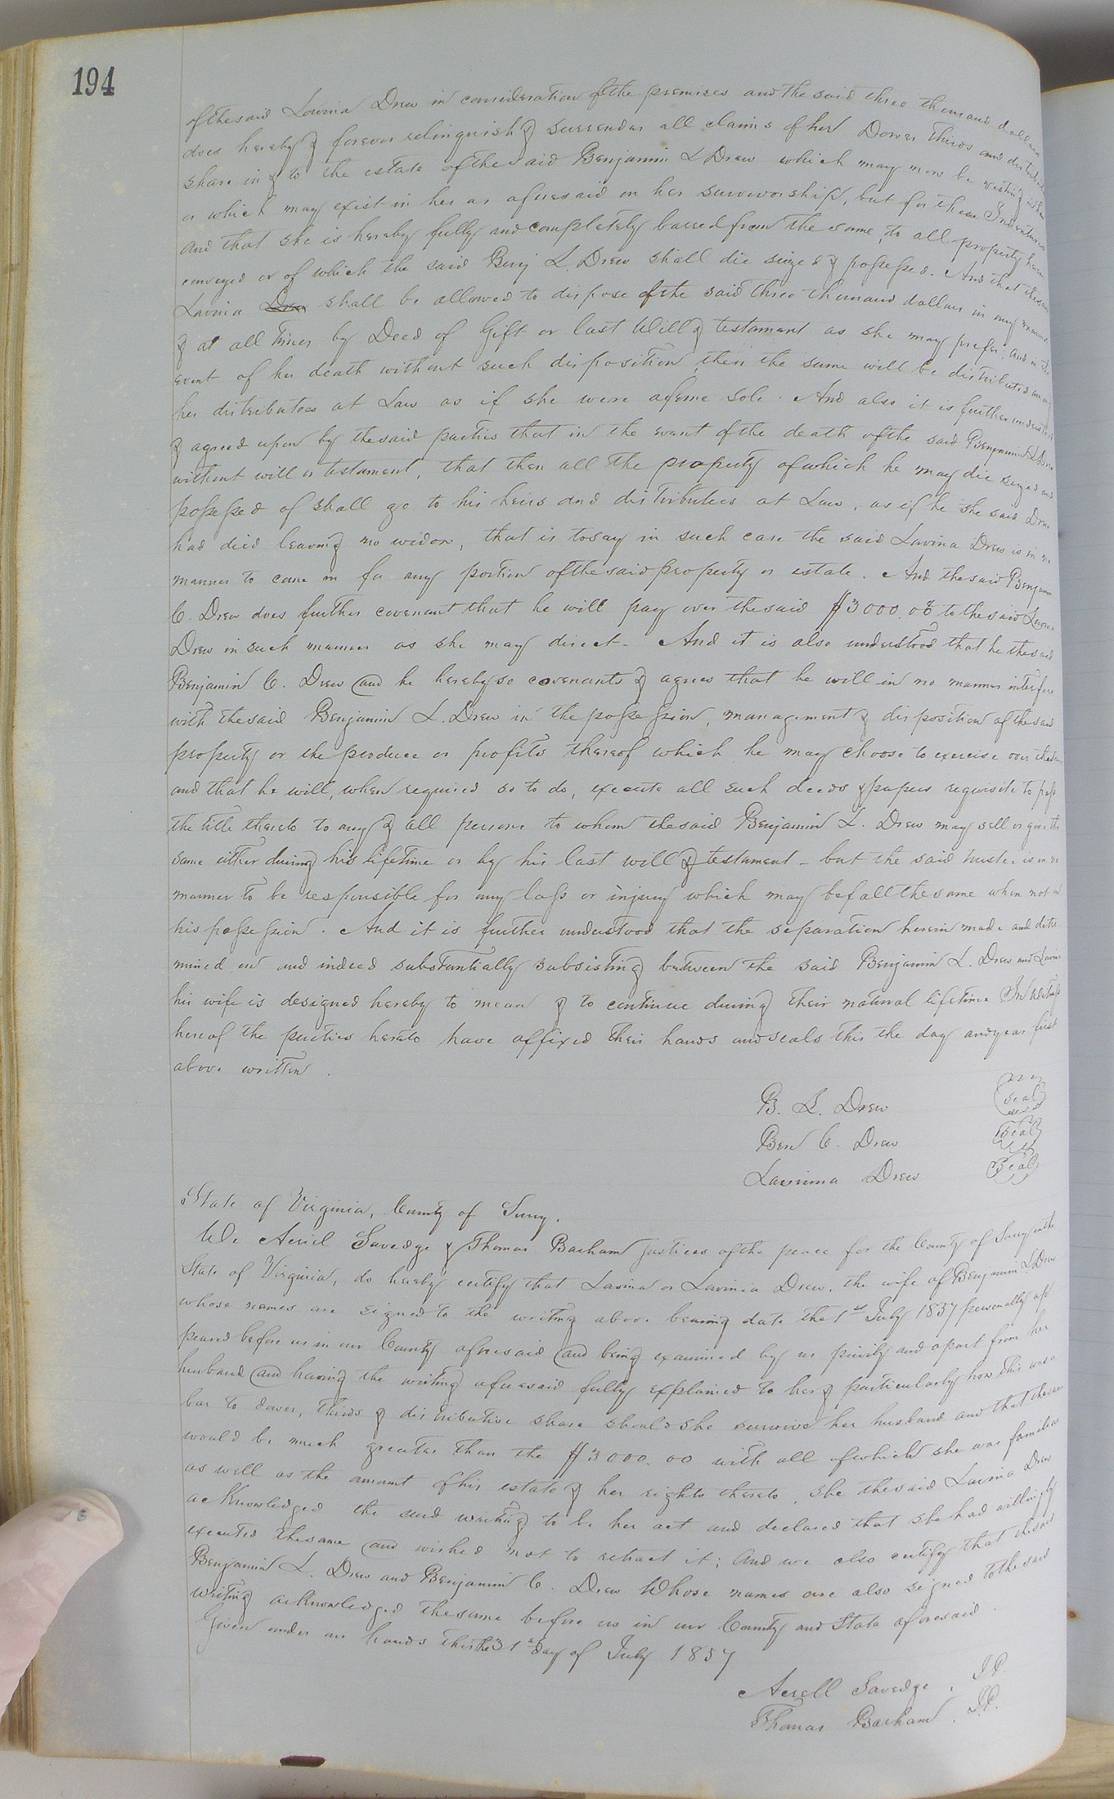 194
of the said Lavinia Drew in consideration of the premises and the said three thousand dollars
does hereby & forever relinquish & surrender all claims of her Dower thirds and distributive
share in & to the estate of the said Benjamin L Drew which may now be existing
or which may exist in her as aforesaid on her survivorship, but for these Indentures
and that she is hereby fully and completely barred from the same, to all property
conveyed or of which the said Benj L. Drew shall die seized & possessed. And that the said
Lavinia Drew shall be allowed to dispose of the said three thousand dollars in any manner
& at all times by Deed of Gift or last Will & testament as she may prefer; and in the
event of her death without such disposition, then the same will be distributed among
her distributees at Law as if she were a feme sole. And also it is further understood
& agreed upon by the said parties that in the event of the death of the said Benjamin L Drew
without will or testament, that then all the property of which he may die seized and
possessed of shall go to his heirs and distributees at Law, as if he the said Drew
had died leaving no widow, that is to say in such case the said Lavina Drew is in no
manner to come in for any portion of the said property or estate. And the said Benjamin
C. Drew does further covenant that he will pay over the said $3000.00 to the said Lavina
Drew in such manner as she may direct- And it is also understood that he the said
Benjamin C. Drew and he hereby so covenants & agrees that he will in no manner interfere
with the said Benjamin L. Drew in the possession, management & disposition of the said
property or the produce or profits thereof which he may choose to exercise over the
and that he will, when required so to do, execute all such deeds & papers requisite to pass
the title thereto to any & all persons to whom the said Benjamin L. Drew may sell or give the
same either during his lifetime or by his last will & testament - but the said trustee is in no
manner to be responsible for any loss or injury which may befall the same when not in
his possession. And it is further understood that the separation herein made and deter
mined on and indeed substantially subsisting between the said Benjamin L. Drew and Lavina
his wife is designed hereby to mean & to continue during their natural lifetime In witness
hereof the parties hereto have affixed their hands and seals this the day and year first
above written.
B. L. Drew Seal
Ben C. Drew Seal
Lavinia Drew Seal
State of Virginia, County of Surry.
We Acrill Savedge & Thomas Barham justices of the peace for the County of Surry in the
State of Virginia, do hereby certify that Lavina or Lavinia Drew, the wife of Benjamin L Drew
whose names are signed to the writing above bearing date the 1st July 1857 personally ap
peared before us in our County aforesaid and being examined by us privily and apart from her
husband and having the writing aforesaid fully explained to her & particularly how this was a
bar to dower, thirds & distributive share should she survive her husband and that the same
would be much greater than the $3000.00 with all of which she was familiar
as well as the amount of his estate & her rights thereto, she the said Lavina Drew
acknowledged the said writing to be her act and declared that she had willingly
executed the same and wished not to retract it; and we also certify that the said
Benjamin L. Drew and Benjamin C. Drew whose names are also signed to the said
writing acknowledged the same before us in our County and State aforesaid.
Given under our hands this the 31st day of July 1857
Acrill Savedge, J.P.
Thomas Barham, J.P.